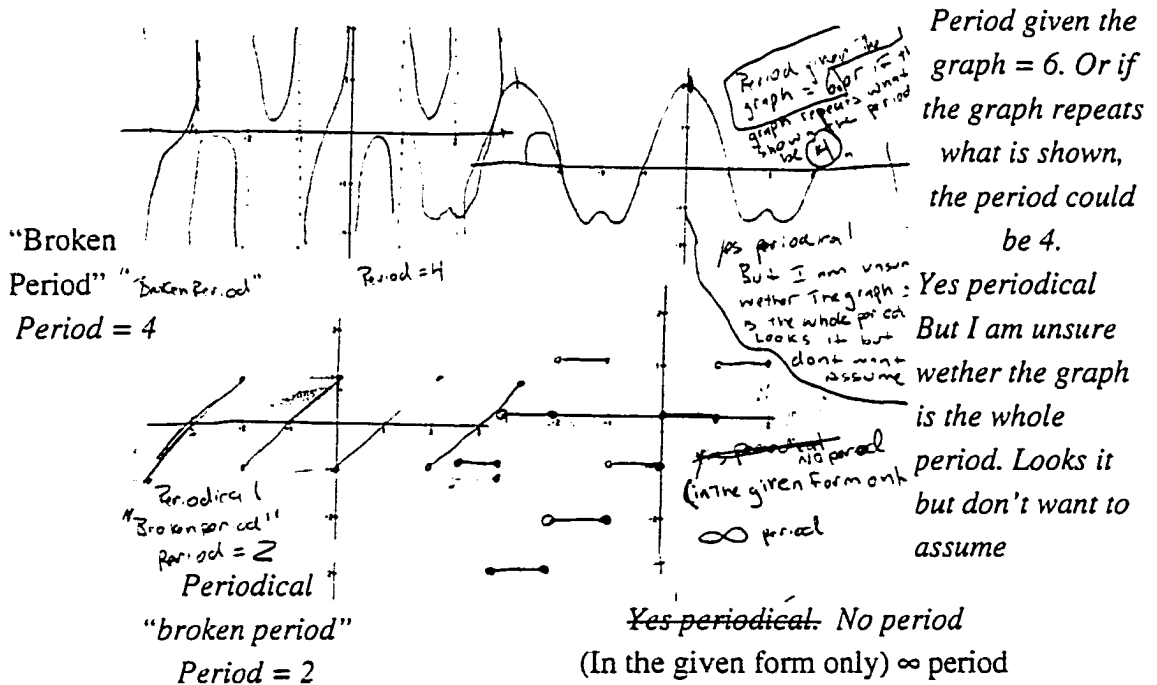 Period given the
graph = 6. Or if
the graph repeats
what is shown,
the period could
be 4.
Period given the
graph = 6. or if th
graph repeats what
shown the period
be 4.
"Broken
Period"
Period = 4
"Broken Period"
Period = 4
yes periodical
But I am unsur
wether The graph
is the whole period
Looks it but
dont want
Assume
Yes periodical
But I am unsure
wether the graph
is the whole
period. Looks it
but don't want to
assume
Periodical
"Broken period"
period = 2
Periodical
"broken period"
Period = 2
yes periodical
No period
(in The given Form onl
∞ period
Yes periodical. No period
(In the given form only) ∞ period